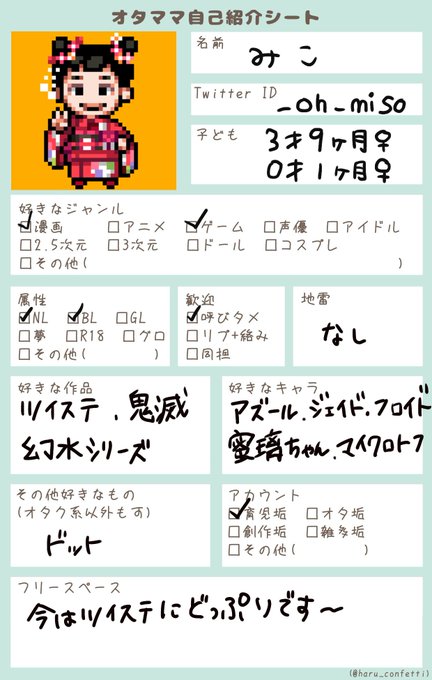 オタママ自己紹介シート
名前
みこ
Twitter ID
_oh_miso
子ども
3才9ヶ月♀
0才1ヶ月♀
好きなジャンル
☑漫画 □アニメ ☑ゲーム □声優 □アイドル
□2.5次元 □3次元 □ドール □コスプレ
□その他( )
属性
☑NL ☑BL □GL
□夢 □R18 □グロ
□その他( )
歓迎
☑呼びタメ
□リプ+絡み
□同担
地雷
なし
好きな作品
ツイステ、鬼滅
幻水シリーズ
好きなキャラ
アズール、ジェイド、フロイド
蜜璃ちゃん、マイクロトフ
その他好きなもの
(オタク系以外も可)
ドット
アカウント
☑育児垢 □オタ垢
□創作垢 □雑多垢
□その他( )
フリースペース
今はツイステにどっぷりです〜
(@haru_confetti)